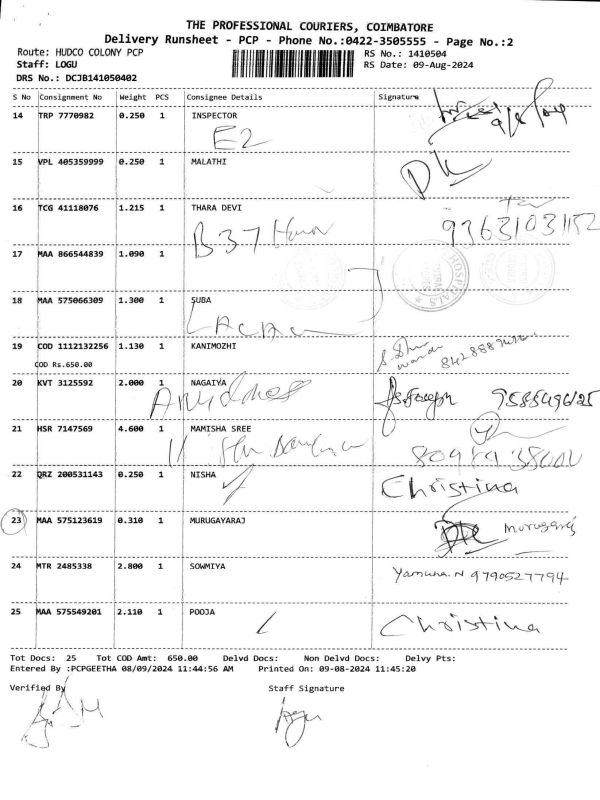 THE PROFESSIONAL COURIERS, COIMBATORE
Delivery Runsheet - PCP - Phone No.:0422-3505555 - Page No.:2
Route: HUDCO COLONY PCP RS No.: 1410504
Staff: LOGU RS Date: 09-Aug-2024
DRS No.: DCJB141050402
S No Consignment No Weight PCS Consignee Details Signature
14 TRP 7770982 0.250 1 INSPECTOR
E2
15 VPL 405359999 0.250 1 MALATHI
16 TCG 41118076 1.215 1 THARA DEVI
B37
17 MAA 866544839 1.090 1
18 MAA 575066309 1.300 1 SUBA
19 COD 1112132256 1.130 1 KANIMOZHI
COD Rs.650.00
20 KVT 3125592 2.000 1 NAGAIYA
S.Joseph
21 HSR 7147569 4.600 1 MAMISHA SREE
22 QRZ 200531143 0.250 1 NISHA
Christina
23 MAA 575123619 0.310 1 MURUGAYARAJ
24 MTR 2485338 2.800 1 SOWMIYA
Yamuna.N 9790527794
25 MAA 575549201 2.110 1 POOJA
Christina
Tot Docs: 25 Tot COD Amt: 650.00 Delvd Docs: Non Delvd Docs: Delvy Pts:
Entered By :PCPGEETHA 08/09/2024 11:44:56 AM Printed On: 09-08-2024 11:45:20
Verified By Staff Signature